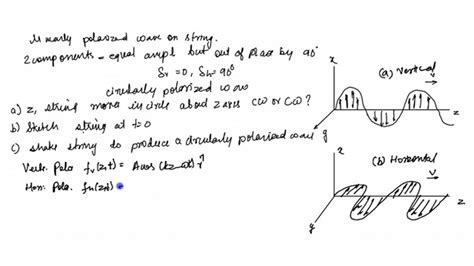 linearly polarized wave on string.
2 components - equal ampl but out of phase by 90°
δv = 0, δh = 90°
circularly polarized wave
a) z, string moves in circle about z axes cw or ccw?
b) Sketch string at t=0
c) shake string to produce a circularly polarized wave
Vert. Pola fv(z,t) = A cos(kz-ωt) x̂
Hori. Pola. fh(z,t) =
x
(a) Vertical
v
z
y
x
(b) Horizontal
v
z
y